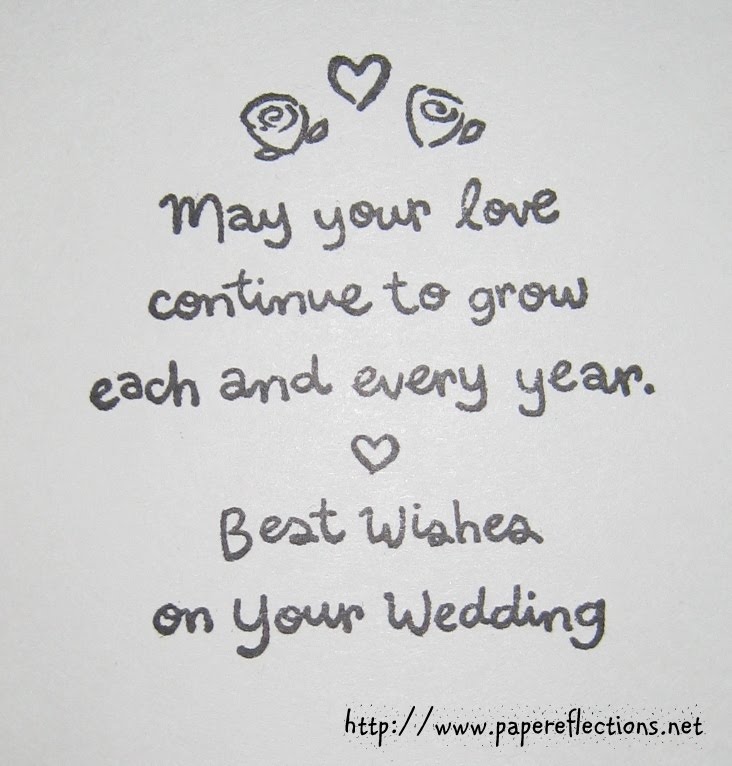 May your love
continue to grow
each and every year.
Best Wishes
on Your Wedding
http://www.papereflections.net